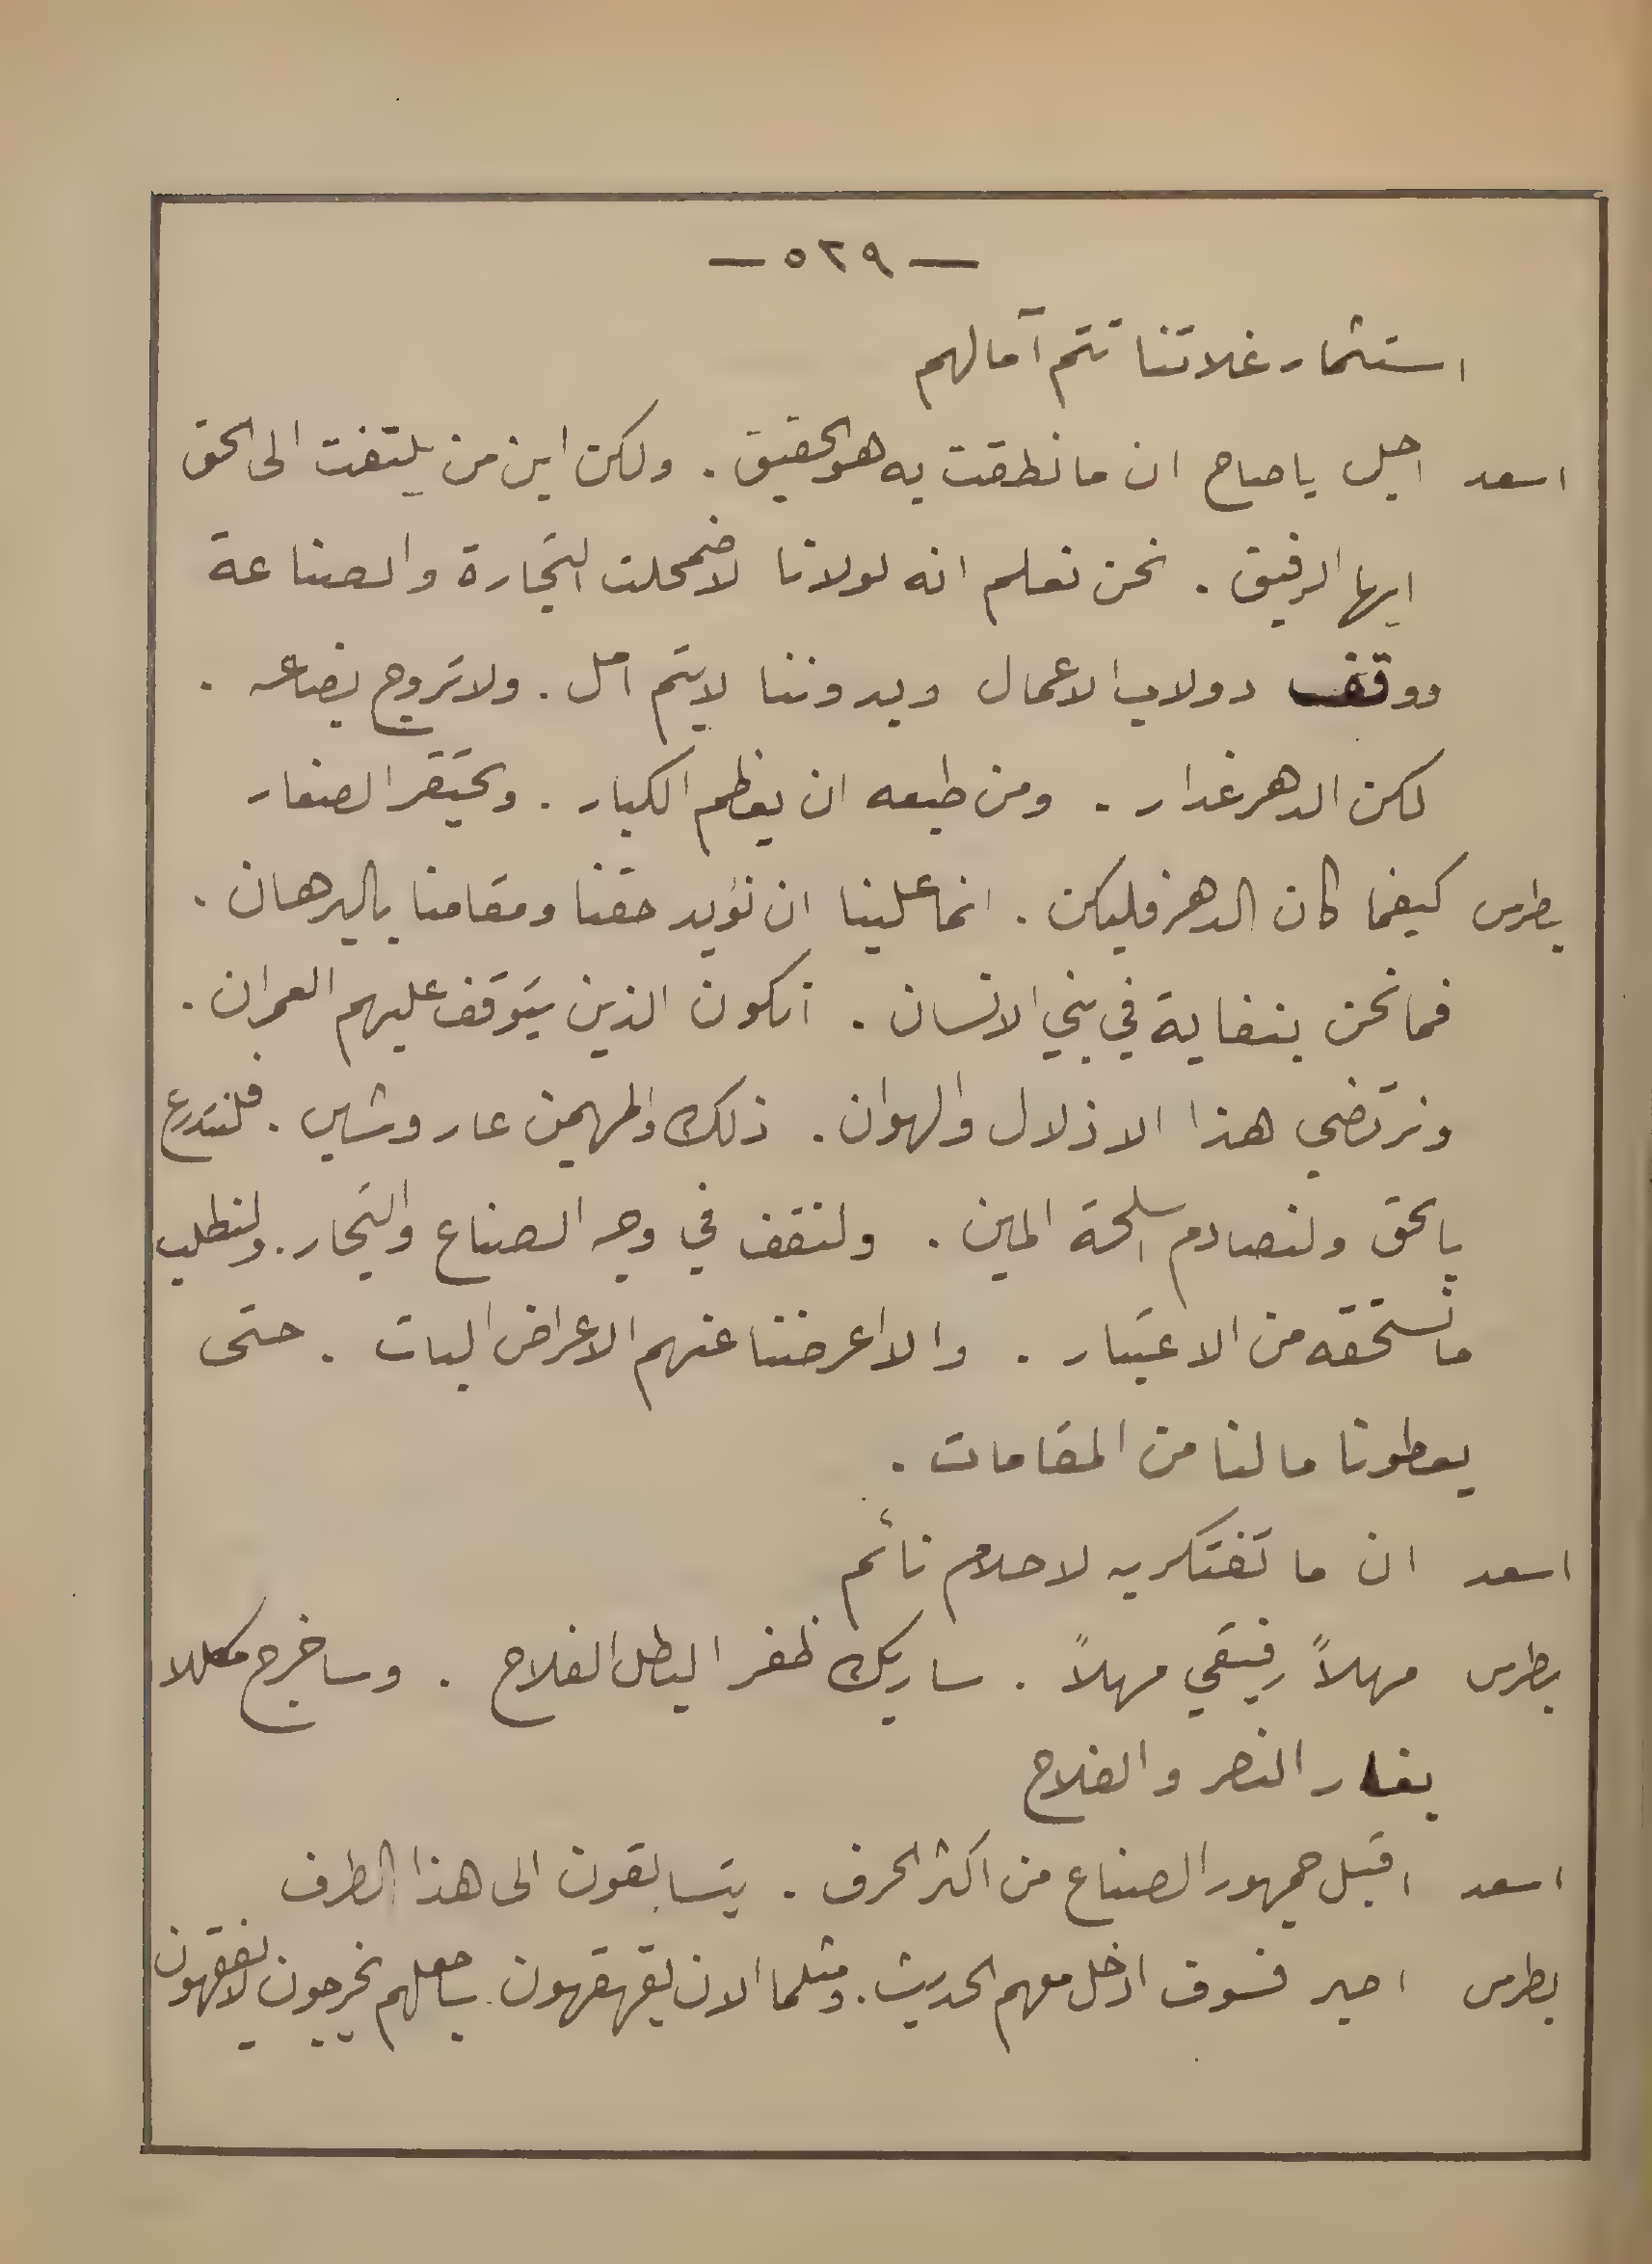 — ٥٢٩ —
استثمار غلاتنا تتم آمالهم
اسعد اجل ياصاح ان ما نطقت به هو الحقيق . ولكن اين من يلتفت الى الحق
ايها الرفيق . نحن نعلم انه لولانا لاضمحلت التجارة والصناعة
ووقف دولاب الاعمال وبدوننا لايتم امل . ولا تروج بضاعه .
لكن الدهر غدار . ومن طبعه ان يعظم الكبار . ويحتقر الصغار
بطرس كيفما كان الدهر فليكن . انما علينا ان نؤيد حقنا ومقامنا بالبرهان .
فما نحن بنفاية في بني الانسان . انكون الذين يتوقف عليهم العمران .
ونرتضي هذا الاذلال والهوان . ذلك والمهيمن عار وشين . فلنتدرع
بالحق ولنصادم اسلحة المين . ولنقف في وجه الصناع والتجار . ولنطلب
ما نستحقه من الاعتبار . والا اعرضنا عنهم الاعراض البات . حتى
يعطونا مالنا من المقامات .
اسعد ان ما تفتكر به لاحلام نائم
بطرس مهلاً رفيقي مهلاً . ساريك ظفر البطل الفلاح . وساخرج مكللا
بغار النصر والفلاح
اسعد اقبل جمهور الصناع من اكثر الحرف . يتسابقون الى هذا الطرف
بطرس اصبر فسوف ادخل معهم الحديث . ومثلما الان يقهقهون ساجعلهم يخرجون لايفقهون